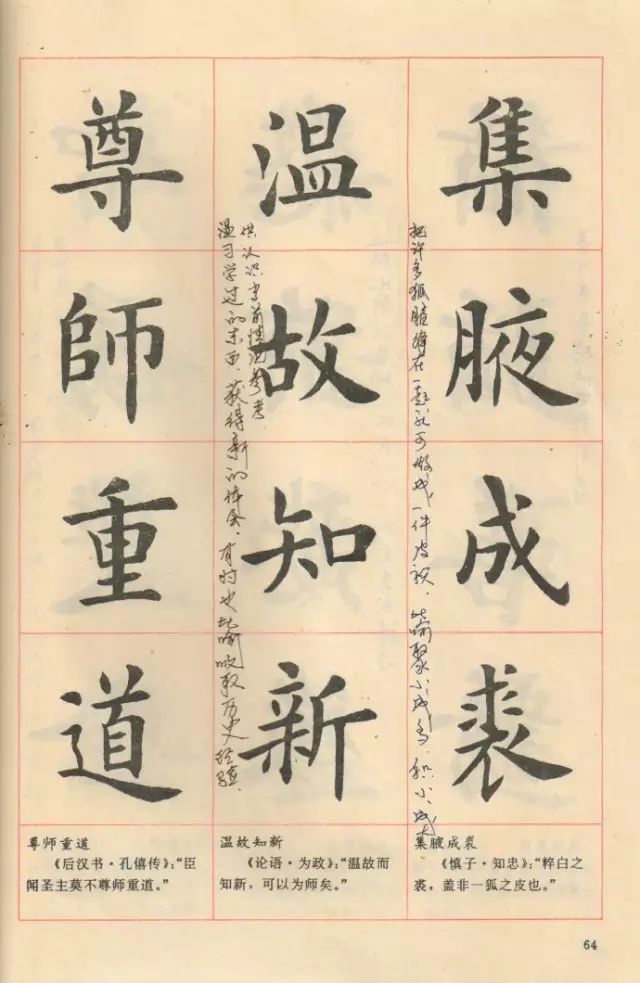 集腋成裘
温故知新
尊師重道
把许多狐腋缝在一起就可做成一件皮袄，比喻聚小成多，积小成大
温习学过的东西，获得新的体会，有时也比喻吸取历史经验，
供认识当前情况参考
尊师重道
《后汉书·孔僖传》：“臣
闻圣主莫不尊师重道。”
温故知新
《论语·为政》：“温故而
知新，可以为师矣。”
集腋成裘
《慎子·知忠》：“粹白之
裘，盖非一狐之皮也。”
64